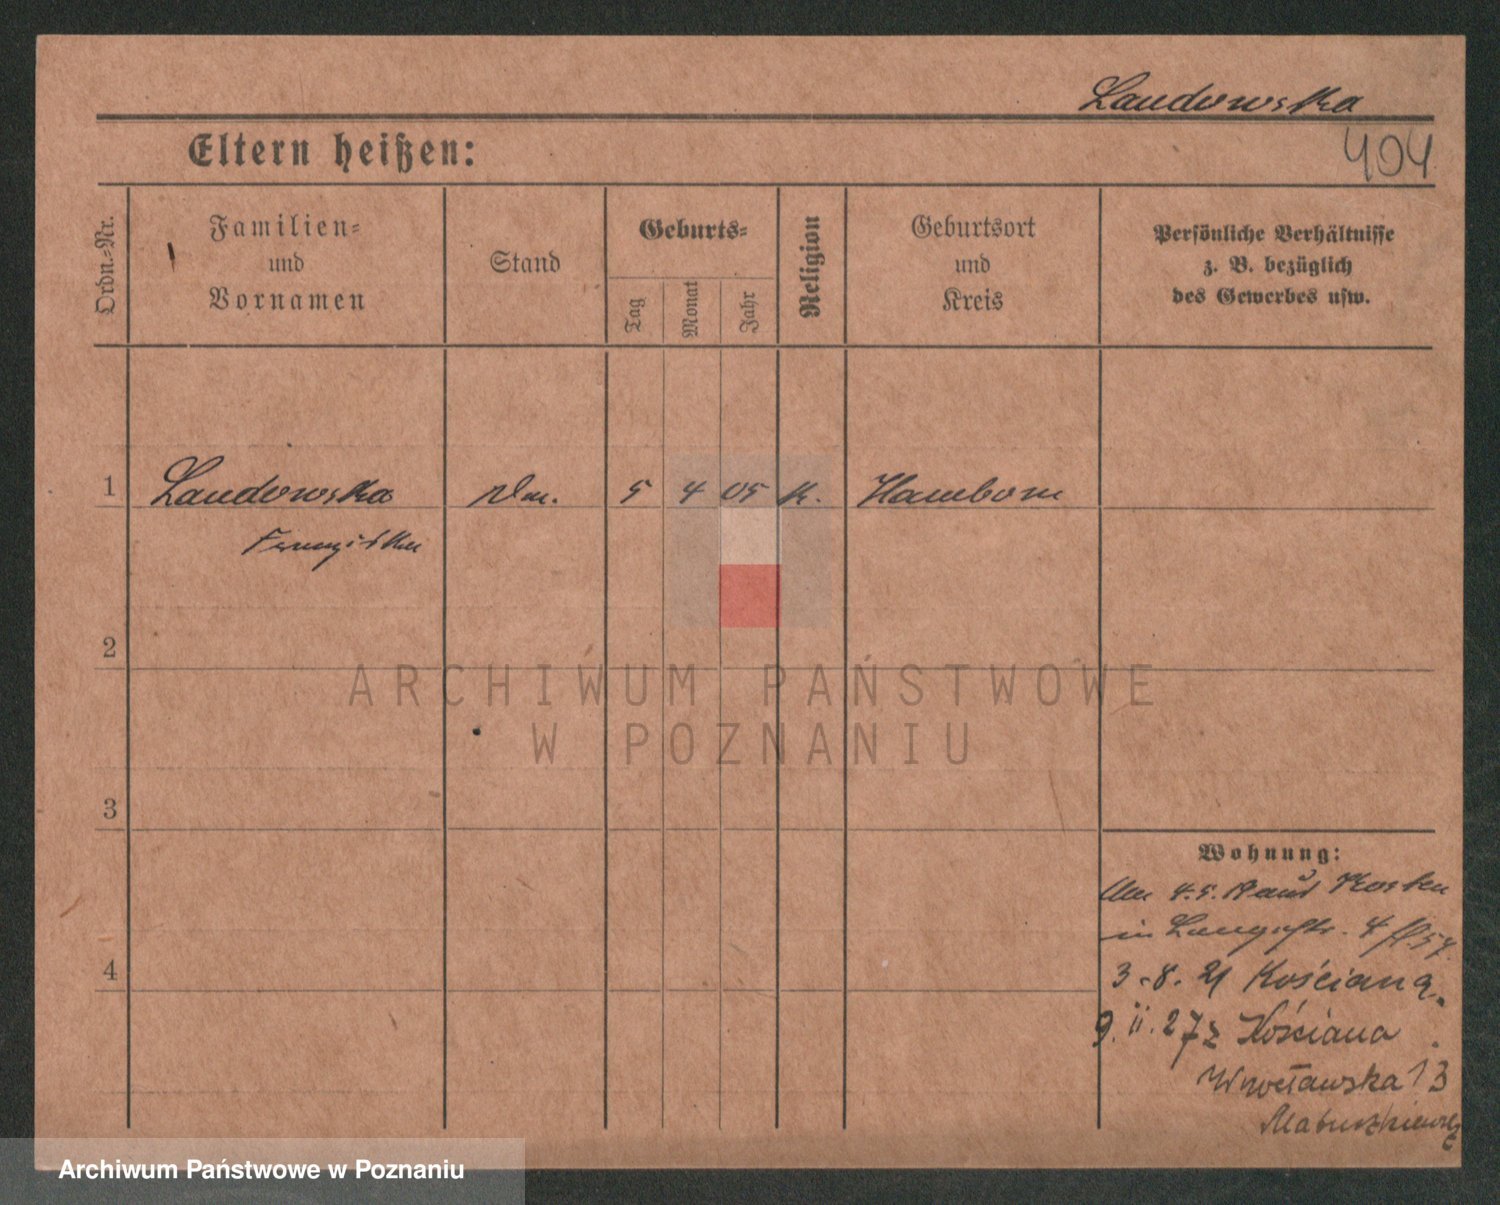 Landowska
404
Eltern heißen:
Ordn.-Nr.
Familien-
und
Vornamen
Stand
Geburts-
Tag
Monat
Jahr
Religion
Geburtsort
und
Kreis
Persönliche Verhältnisse
z. B. bezüglich
des Gewerbes usw.
1 Landowska 5 4 05 K. Hamborn
Franziska
2
3
4
Wohnung:
4.5. Kosten
in 4
3.8.21 Kościana
9.ii.27 z Kościana
Wrocławska 13
ARCHIWUM PAŃSTWOWE
W POZNANIU
Archiwum Państwowe w Poznaniu